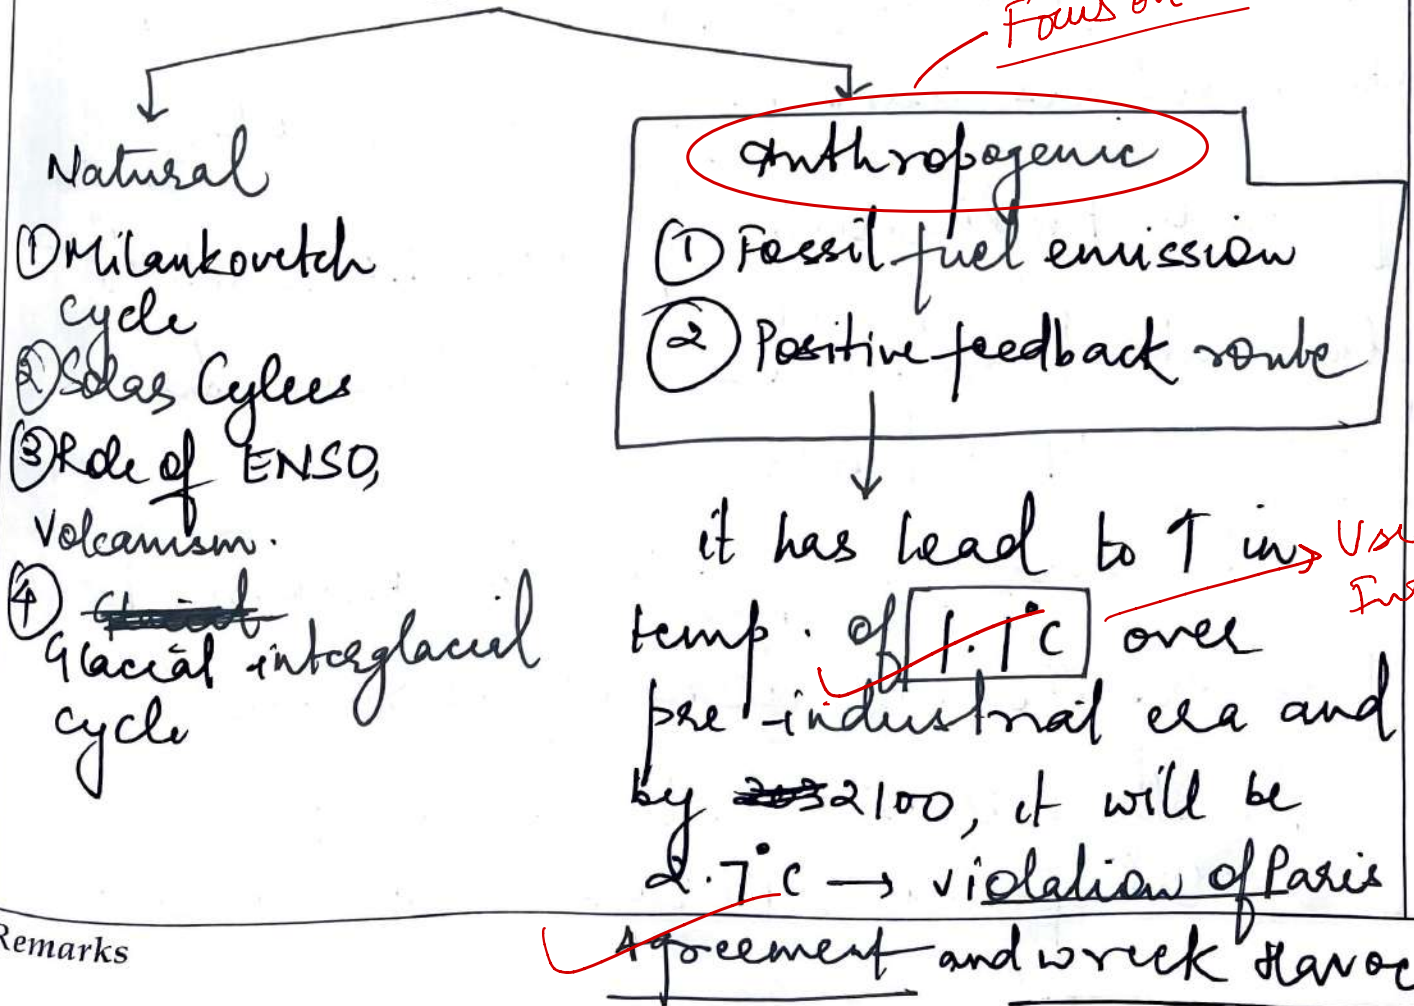 Focus on
Natural
① Milankovetch
cycle
② Solar Cylces
③ Role of ENSO,
Volcanism.
④
Glacial interglacial
cycle
Anthropogenic
① Fossil fuel emission
② Positive feedback route
it has lead to ↑ in
temp. of 1.1°C over
pre-industrial era and
by 2100, it will be
2.7°C → violation of Paris
Agreement and wreck Havoc
Remarks